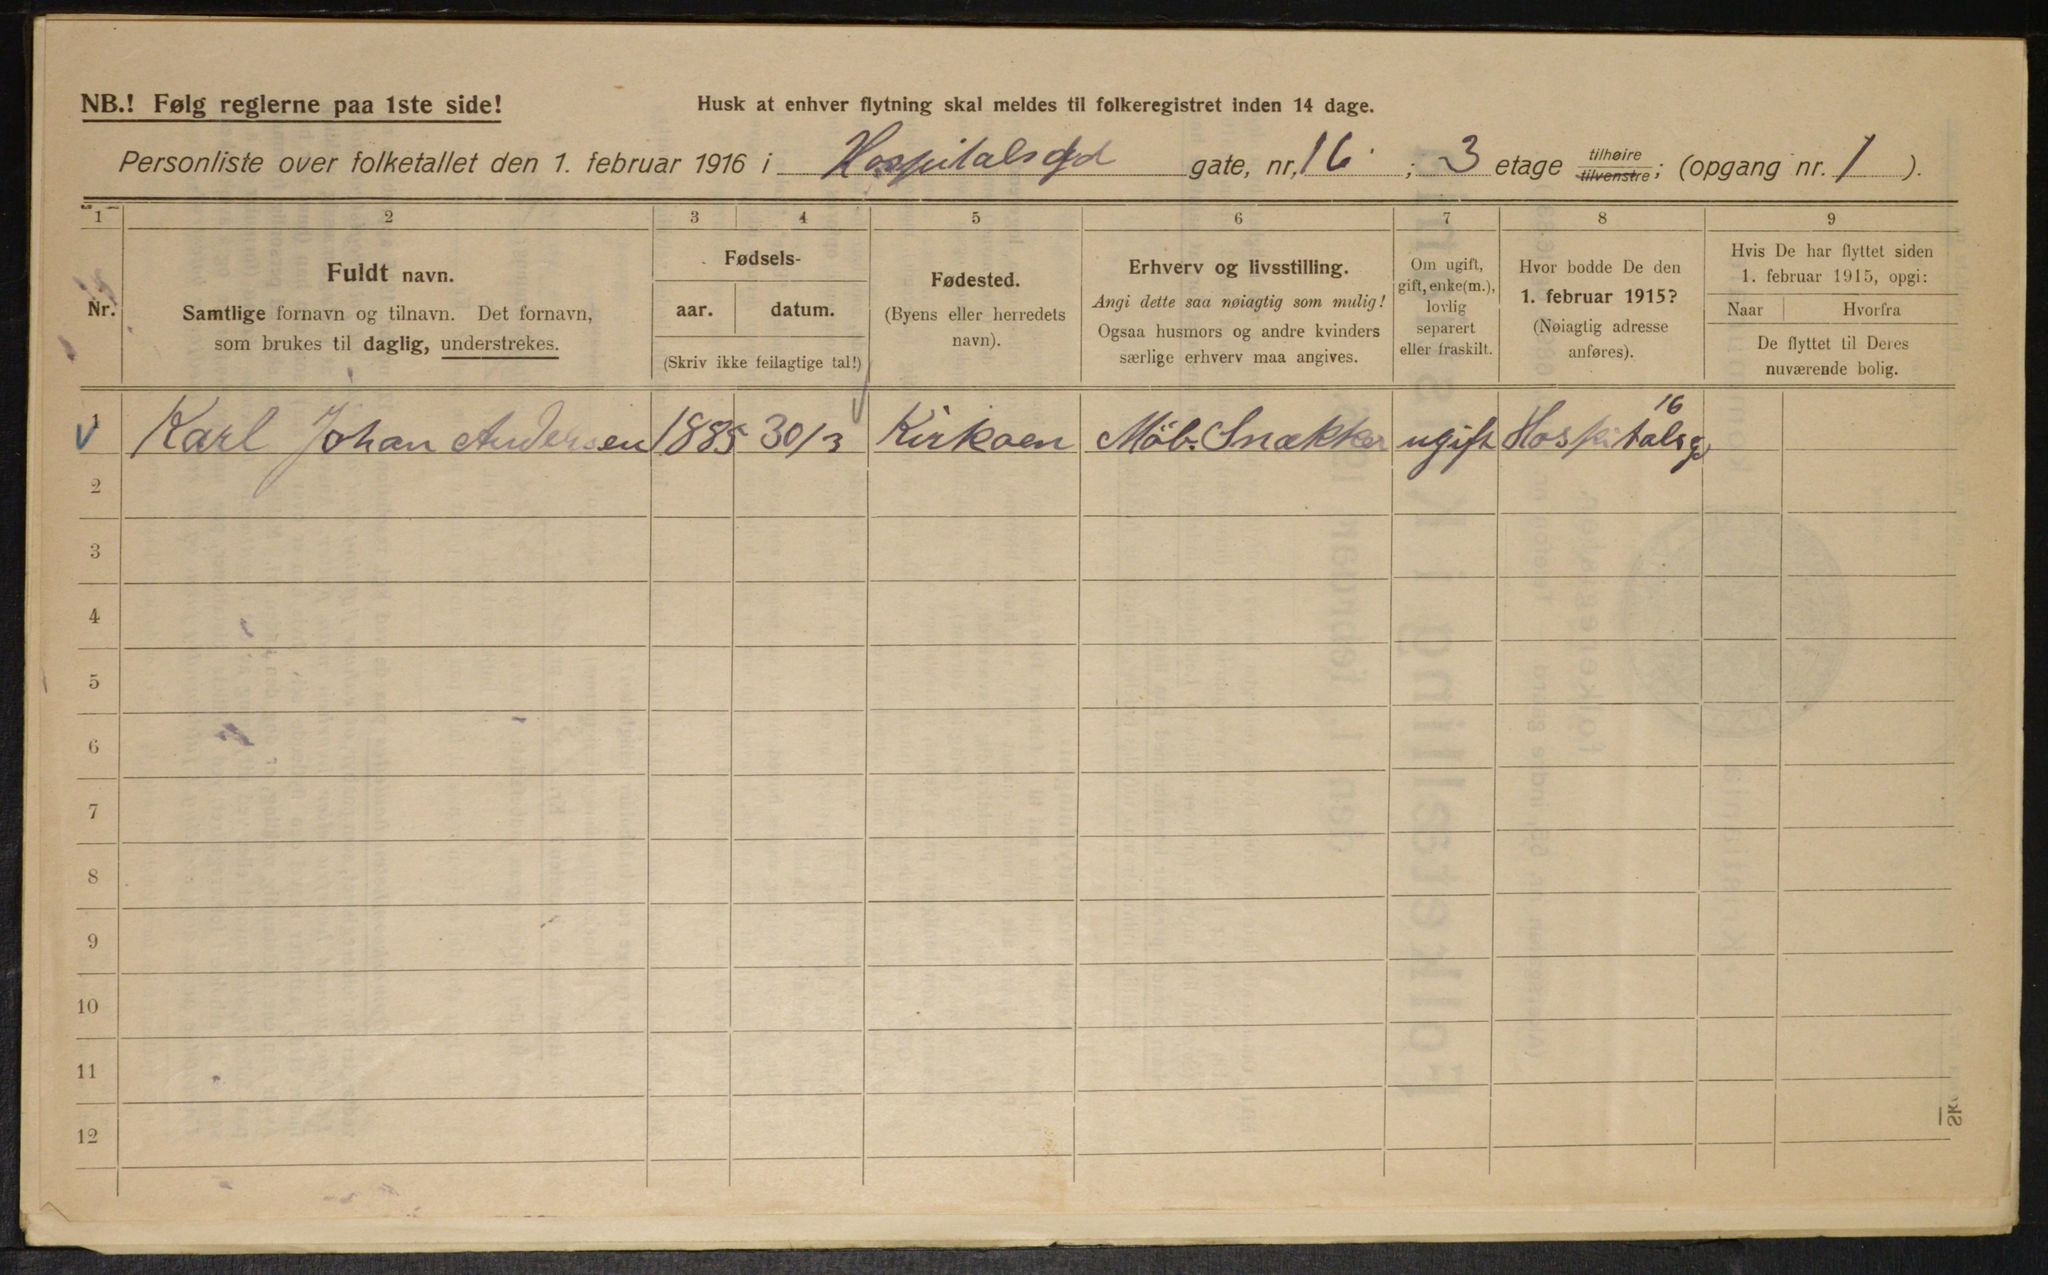 NB.! Følg reglerne paa 1ste side!
Husk at enhver flytning skal meldes til folkeregistret inden 14 dage.
Personliste over folketallet den 1. februar 1916 i Hospitalsgd gate, nr. 16 ; 3 etage tilhøire tilvenstre; (opgang nr. 1 ).
1 2 3 4 5 6 7 8 9
Nr.
Fuldt navn.
Samtlige fornavn og tilnavn. Det fornavn,
som brukes til daglig, understrekes.
Fødsels-
aar. datum.
(Skriv ikke feilagtige tal!)
Fødested.
(Byens eller herredets
navn).
Erhverv og livsstilling.
Angi dette saa nøiagtig som mulig!
Ogsaa husmors og andre kvinders
særlige erhverv maa angives.
Om ugift,
gift, enke(m.),
lovlig
separert
eller fraskilt.
Hvor bodde De den
1. februar 1915?
(Nøiagtig adresse
anføres).
Hvis De har flyttet siden
1. februar 1915, opgi:
Naar Hvorfra
De flyttet til Deres
nuværende bolig.
16
1 Karl Johan Andersen 1885 30/3 Kirkoen Möb. Snækker ugift Hospitalsg
2
3
4
5
6
7
8
9
10
11
12